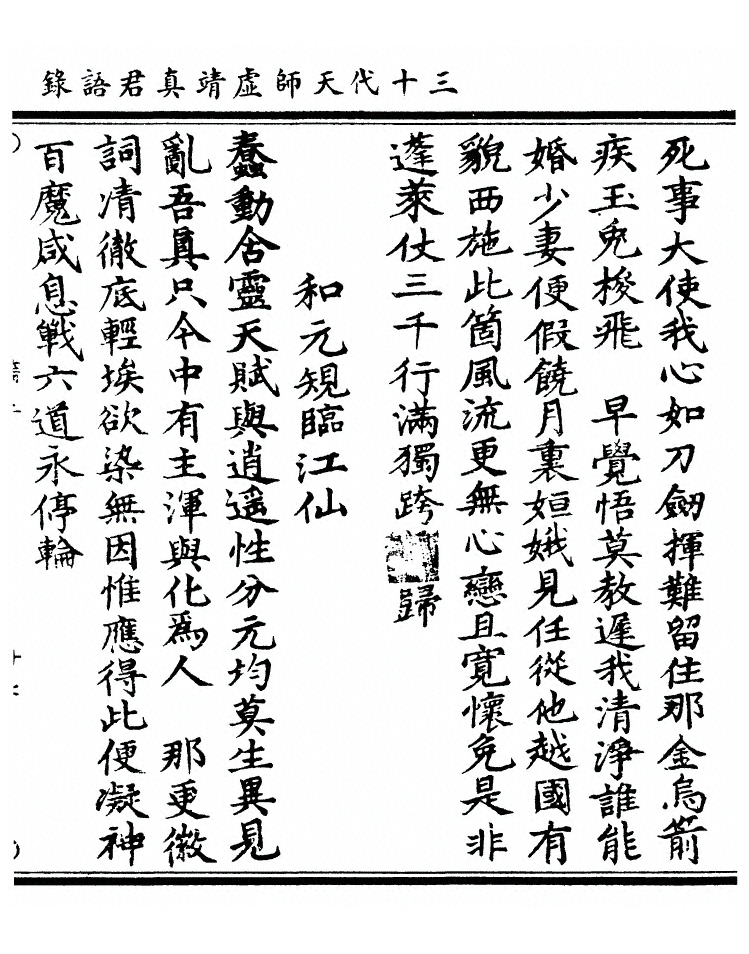 三十代天師虛靖真君語錄
死事大使我心如刀劒揮難留住那金烏箭
疾玉兔梭飛　早覺悟莫教遲我清淨誰能
婚少妻便假饒月裏姮娥見任從他越國有
貌西施此箇風流更無心戀且寬懷免是非
蓬萊仗三千行滿獨跨歸
和元規臨江仙
蠢動含靈天賦與逍遥性分元均莫生異見
亂吾眞只今中有主渾與化爲人　那更徽
詞凊徹底輕埃欲染無因惟應得此便凝神
百魔咸息戰六道永停輪